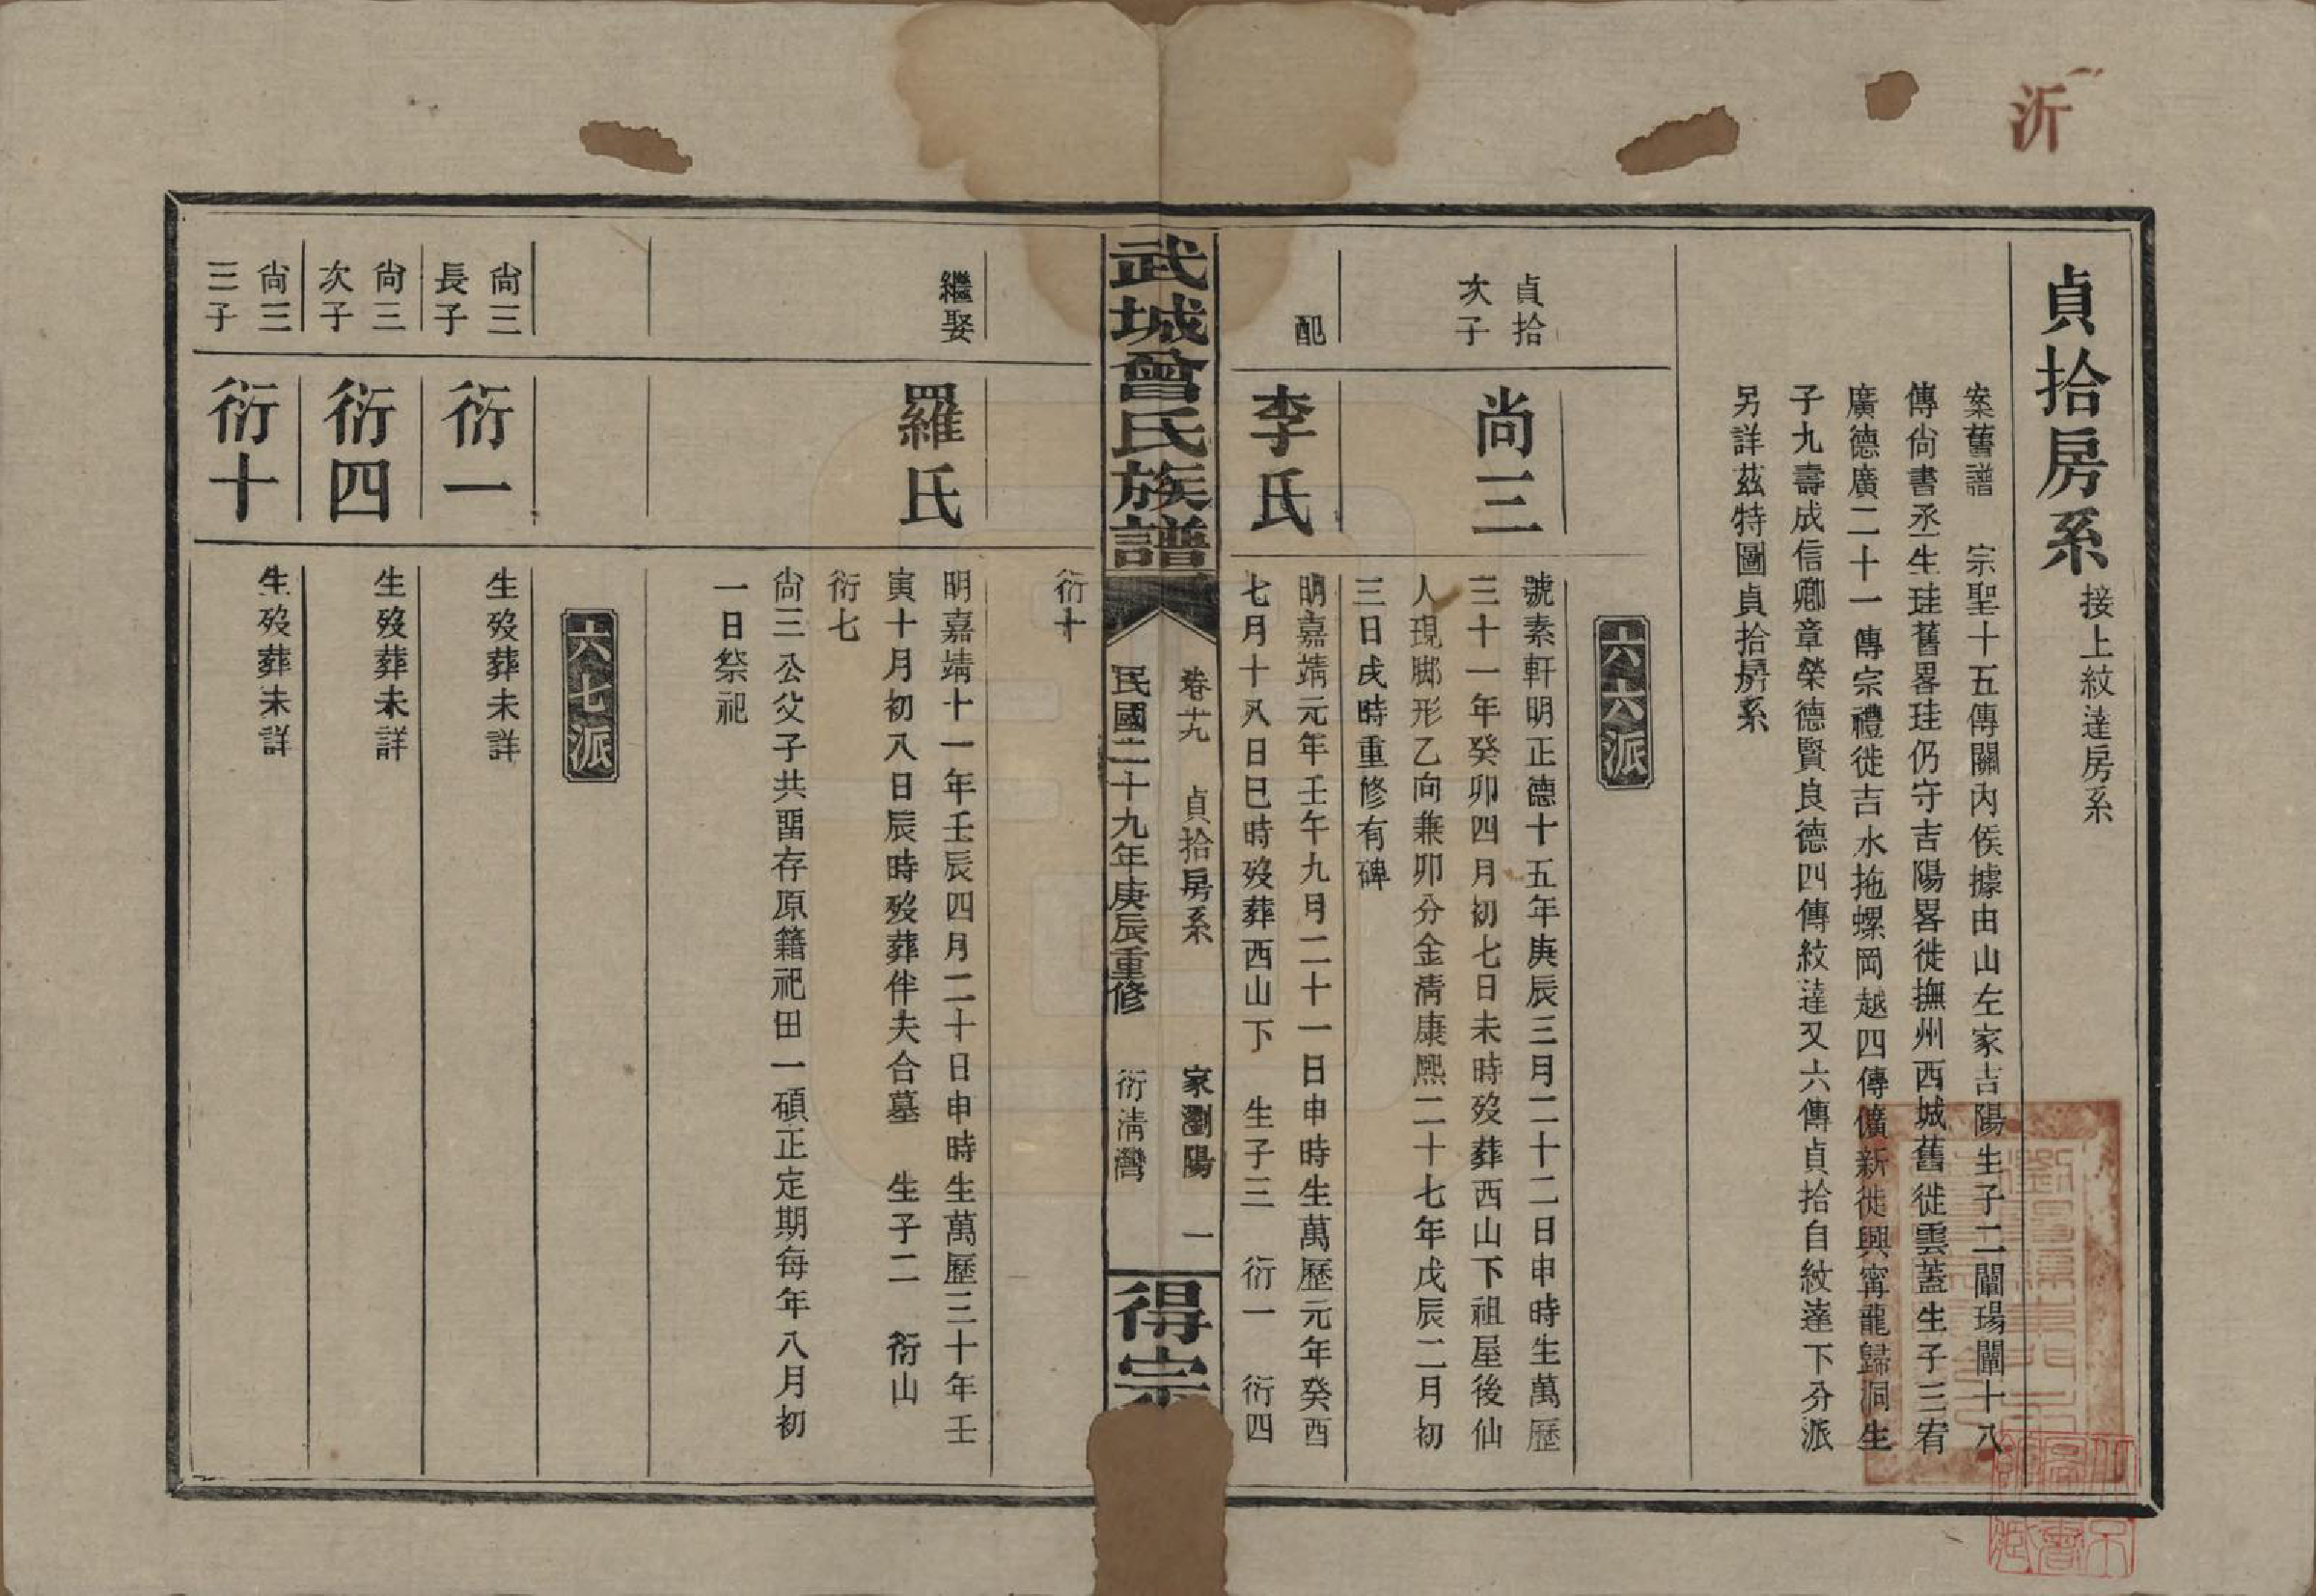 沂
貞拾房系 接上紋達房系
案舊譜 宗聖十五傳關內侯據由山左家吉陽生子二闡瑒闡十八
傳尙書丞生珪舊畧珪仍守吉陽畧徙撫州西城舊徙雲蓋生子三宥
廣德廣二十一傳宗禮徙吉水拖螺岡越四傳儣新徙興甯龍歸洞生
子九壽成信卿章榮德賢良德四傳紋達又六傳貞拾自紋達下分派
另詳茲特圖貞拾房系
六六派
貞拾
次子
尚三
號素軒明正德十五年庚辰三月二十二日申時生萬歷
三十一年癸卯四月初七日未時歿葬西山下祖屋後仙
人現腳形乙向兼卯分金淸康熙二十七年戊辰二月初
三日戌時重修有碑
配
李氏
明嘉靖元年壬午九月二十一日申時生萬歷元年癸酉
七月十八日巳時歿葬西山下 生子三 衍一 衍四
武城曾氏族譜
卷十九 貞拾房系 家瀏陽 一
民國二十九年庚辰重修 衍淸灣
得宗
衍十
繼娶
羅氏
明嘉靖十一年壬辰四月二十日申時生萬歷三十年壬
寅十月初八日辰時歿葬伴夫合墓 生子二 衍山
衍七
尙三公父子共畱存原籍祀田一碩正定期每年八月初
一日祭祀
六七派
尙三
長子
衍一
生歿葬未詳
尙三
次子
衍四
生歿葬未詳
尙三
三子
衍十
生歿葬未詳